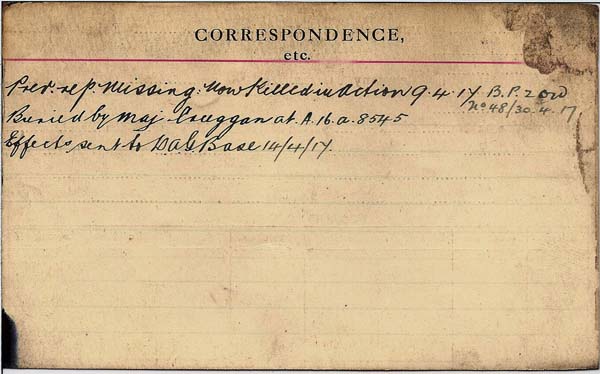 CORRESPONDENCE,
etc.
Prev. rep. Missing. Now Killed in Action 9.4.17 B.P.2 OW
No 48/30.4.17
Buried by Maj. at. A.16.a.8545
Effects sent to DAG Base 14/4/17.